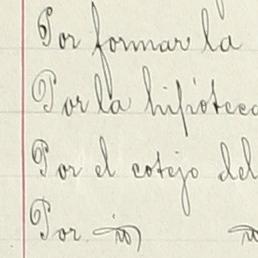 Por formar la
Por la hipoteca
Por el cotejo del
Por